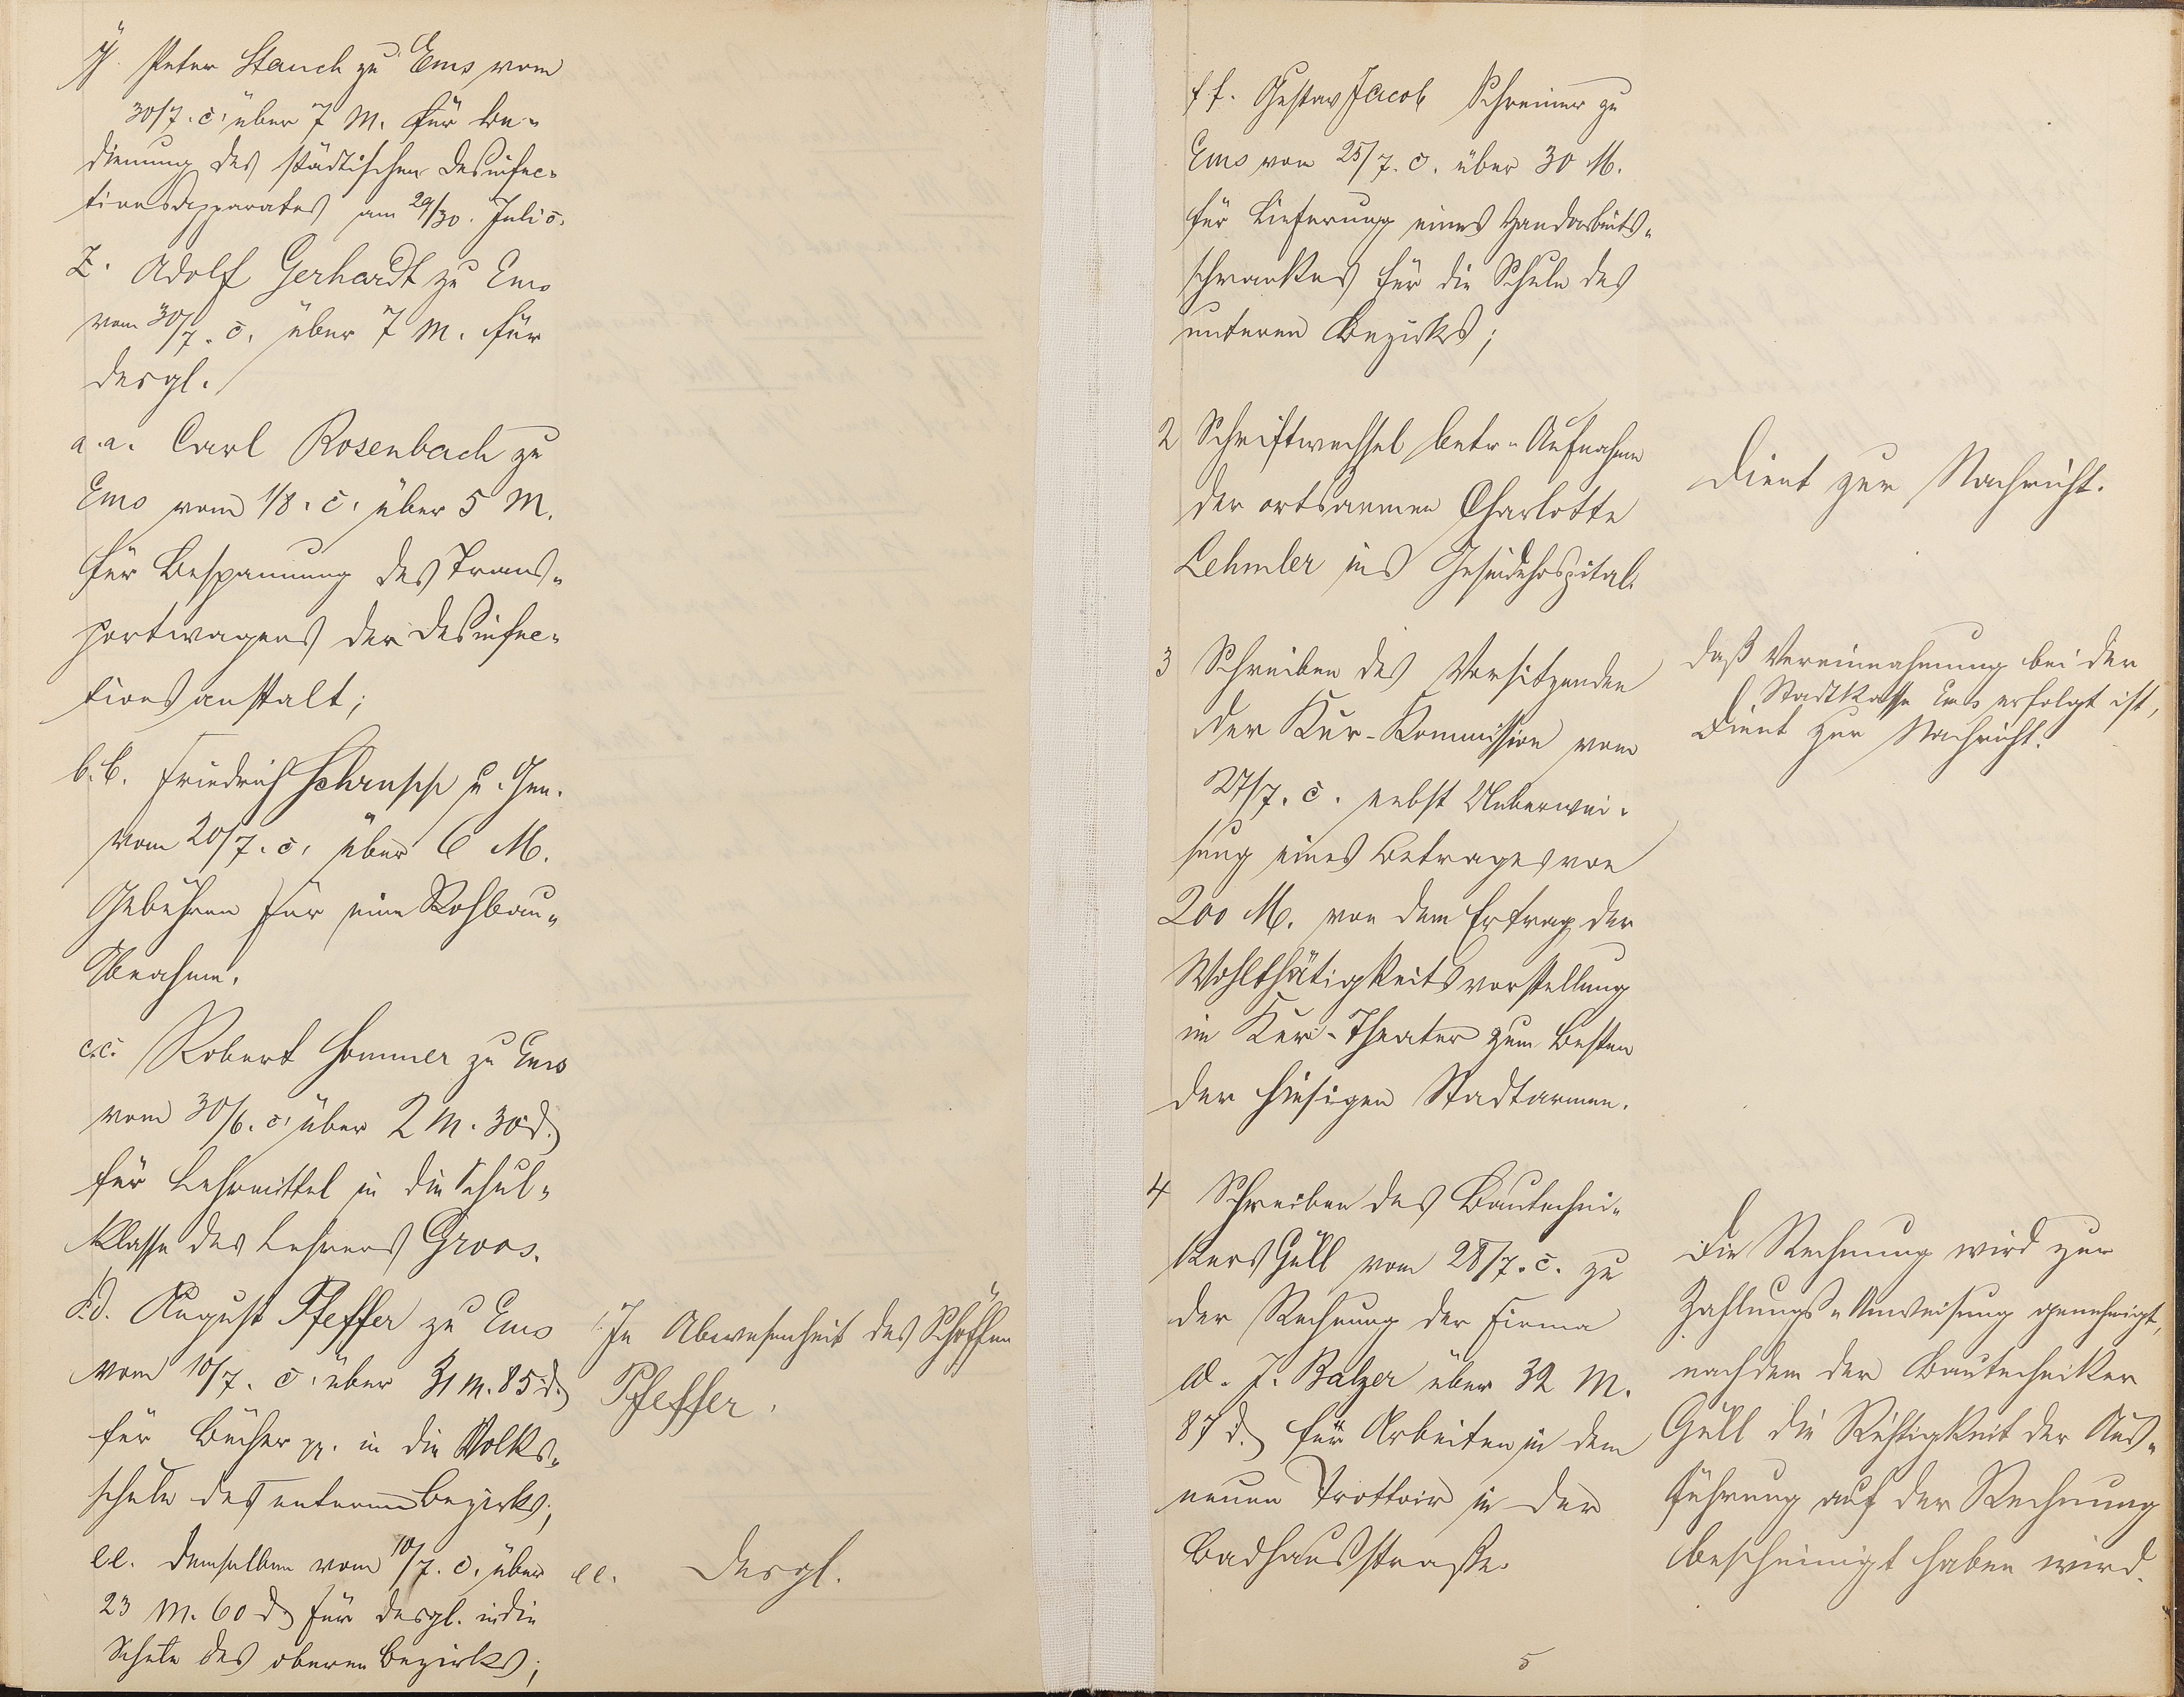 y. Peter Stauch zu Ems vom
30/7. c. über 7 M. für Be-
dienung des städtischen Desinfec-
tionsapparates am 29/30. Juli c.
z. Adolf Gerhardt zu Ems
vom 30/7. c. über 7 M. für
desgl.
a.a. Carl Rosenbach zu
Ems vom 1/8. c. über 5 M.
für Bespannung des Trans-
portwagens der Desinfec-
tionsanstalt;
b.b. Friedrich u. Gen.
vom 20/7. c. über 6 M.
Gebühren für eine Rohbau-
Abnahme.
c.c. Robert Sommer zu Ems
vom 30/6. c. über 2 M. 30 d.
für Lehrmittel in die Schul-
klasse des Lehrers Groos.
d.d. August Pfeffer zu Ems
vom 10/7. c. über 31 M. 85 d.
für Bücher pp. in die Volks-
schule des unteren Bezirks;
ee. demselben vom 10/7. c. über
23 M. 60 d. für desgl. in die
Schule des oberen Bezirks;
In Abwesenheit des Schöffen
Pfeffer.
ee. desgl.
ff. Gustav Jacob Schreiner zu
Ems von 25/7. c. über 30 M.
für Lieferung eines Handarbeits-
schrankes für die Schule des
unteren Bezirks;
2 Schriftwechsel betr. Aufnahme
der ortsarmen Charlotte
Lehmler ins Gesindehospital.
Dient zur Nachricht.
3 Schreiben des Vorsitzenden
der Kur-Kommission vom
27/7. c. nebst Ueberwei-
sung eines Betrages von
200 M. von dem Ertrag der
Wohlthätigkeitsvorstellung
im Kur-Theater zum Besten
der hiesigen Stadtarmen.
Daß Vereinnahmung bei der
Stadtkasse Ems erfolgt ist,
dient zur Nachricht.
4 Schreiben des Bautechni-
kers Güll vom 28/7. c. zu
der Rechnung der Firma
W. J. Balzer über 32 M.
87 d. für Arbeiten in dem
neuen Trottoir in der
Badhausstraße.
Die Rechnung wird zur
Zahlungs-Anweisung genehmigt,
nachdem der Bautechniker
Güll die Richtigkeit der Aus-
führung auf der Rechnung
bescheinigt haben wird.
5